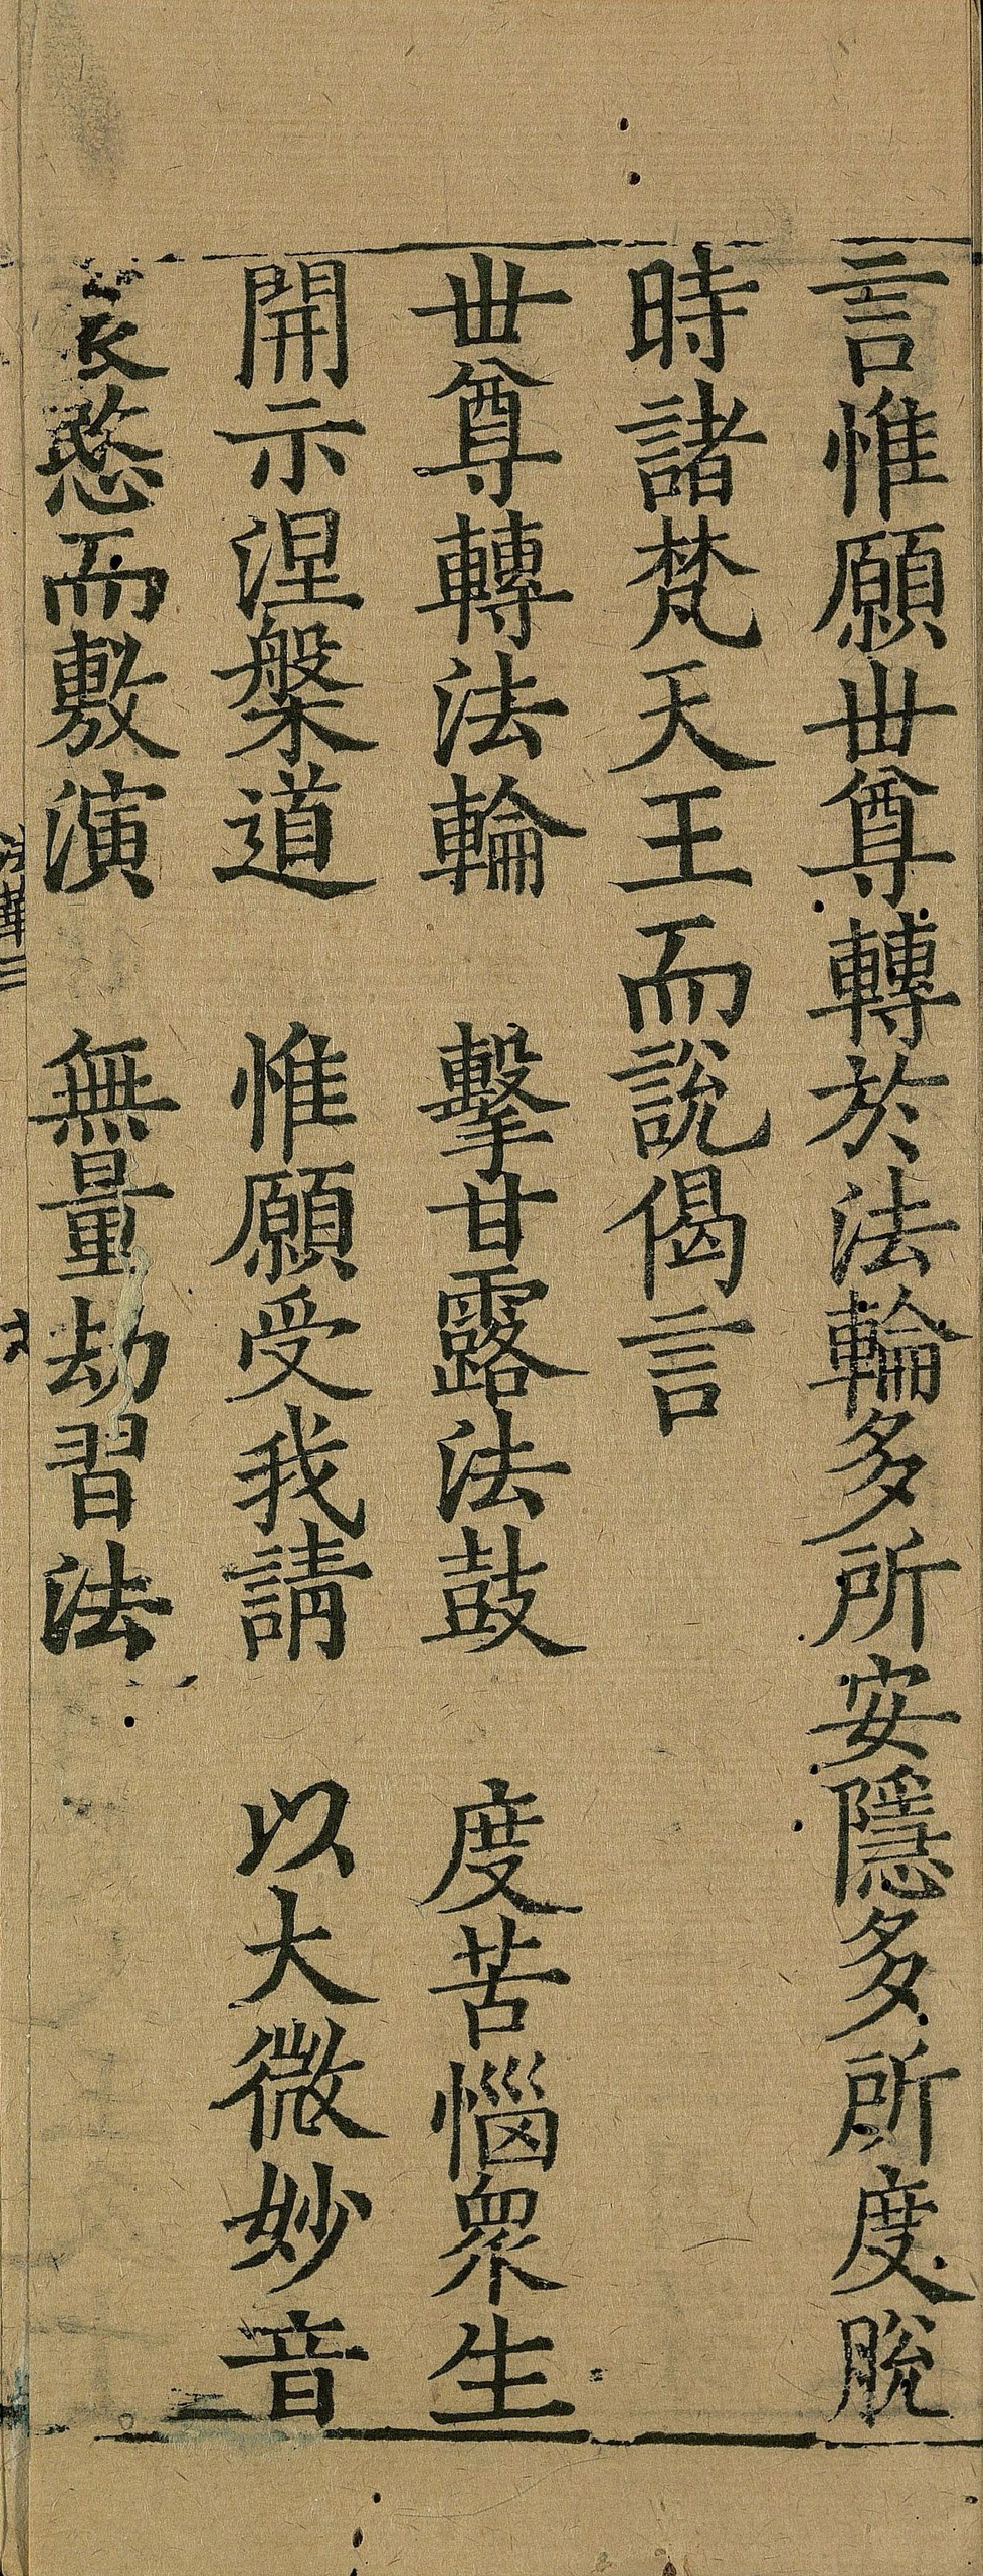 言惟願世尊轉於法輪多所安隱多所度脫
時諸梵天王而說偈言
世尊轉法輪　擊甘露法鼓　度苦惱眾生
開示涅槃道　惟願受我請　以大微妙音
哀愍而敷演　無量劫習法
法華三